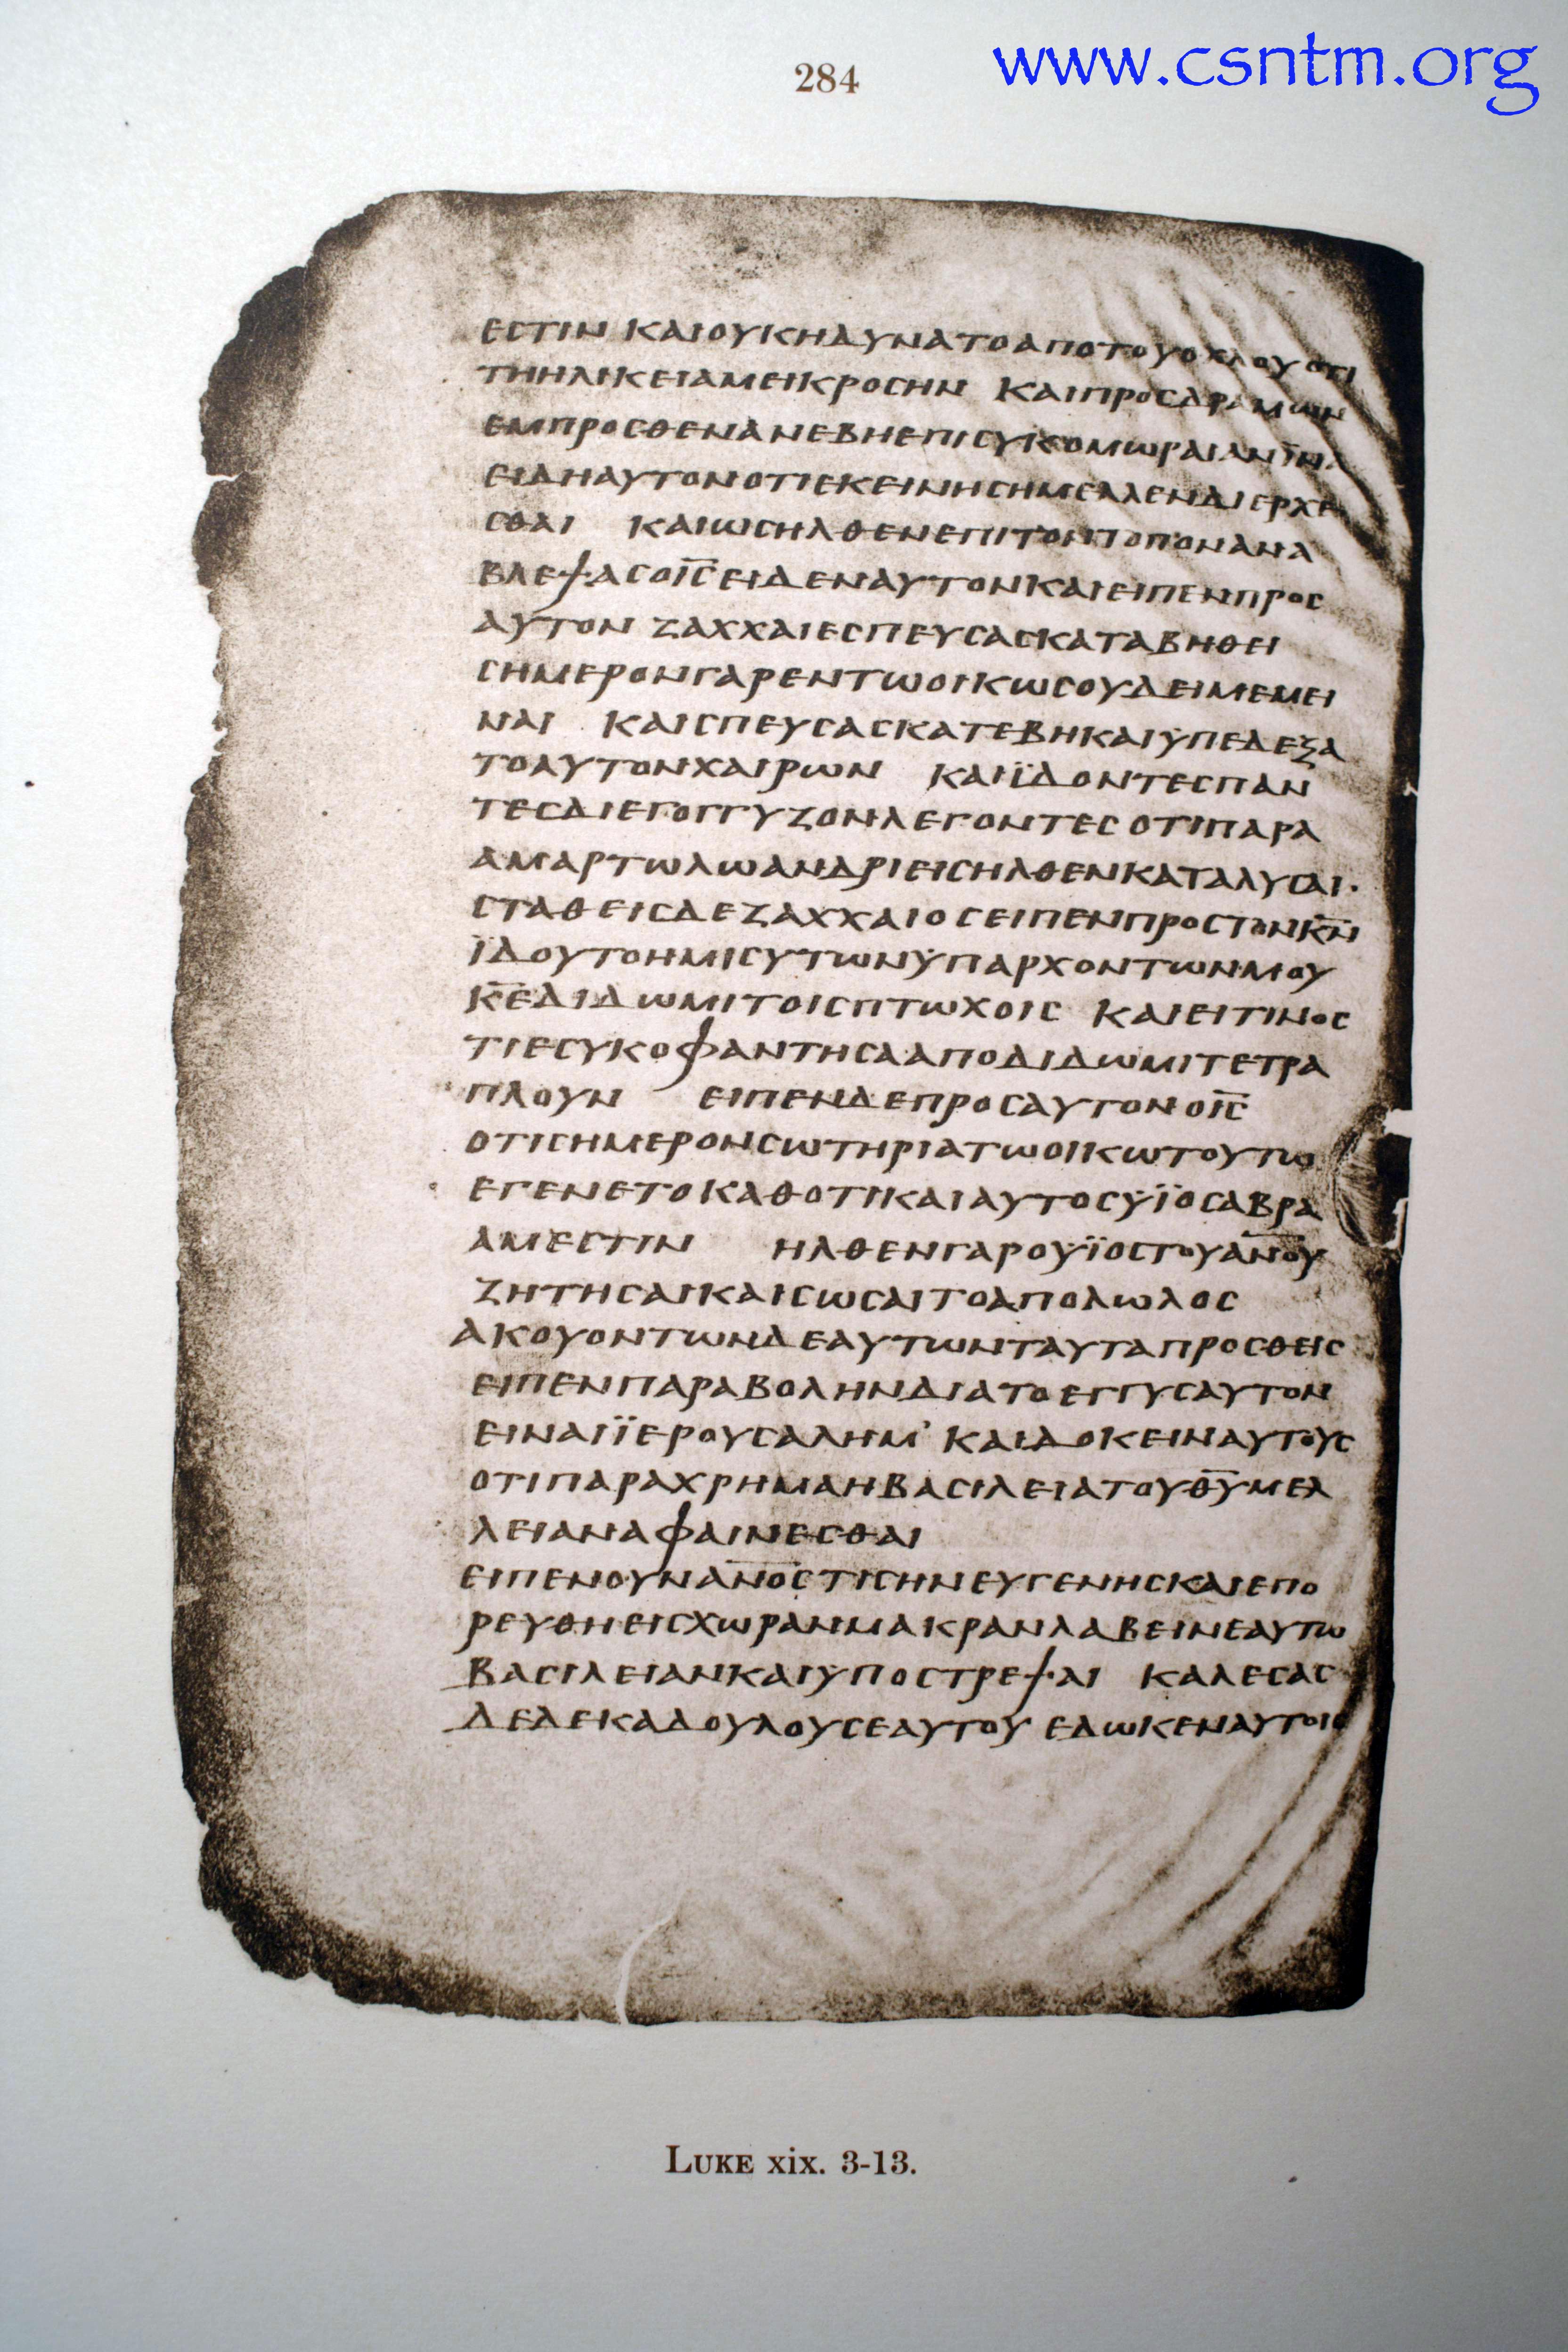 284
www.csntm.org
ΕCΤΙΝ ΚΑΙΟΥΚΗΔΥΝΑΤΟΑΠΟΤΟΥΟΧΛΟΥΟΤΙ
ΤΗΗΛΙΚΕΙΑΜΕΙΚΡΟCΗΝ ΚΑΙΠΡΟCΔΡΑΜΩΝ
ΕΜΠΡΟCΘΕΝΑΝΕΒΗΕΠΙCΥΚΟΜΩΡΑΙΑΝΪΝΑ
ΕΙΔΗΑΥΤΟΝΟΤΙΕΚΕΙΝΗCΗΜΕΛΛΕΝΔΙΕΡΧΕ
CΘΑΙ ΚΑΙΩCΗΛΘΕΝΕΠΙΤΟΝΤΟΠΟΝΑΝΑ
ΒΛΕΨΑCΟΙ̅C̅ΕΙΔΕΝΑΥΤΟΝΚΑΙΕΙΠΕΝΠΡΟC
ΑΥΤΟΝ ΖΑΧΧΑΙΕCΠΕΥCΑCΚΑΤΑΒΗΘΕΙ
CΗΜΕΡΟΝΓΑΡΕΝΤΩΟΙΚΩCΟΥΔΕΙΜΕΜΕΙ
ΝΑΙ ΚΑΙCΠΕΥCΑCΚΑΤΕΒΗΚΑΙΫΠΕΔΕΞΑ
ΤΟΑΥΤΟΝΧΑΙΡΩΝ ΚΑΙΪΔΟΝΤΕCΠΑΝ
ΤΕCΔΙΕΓΟΓΓΥΖΟΝΛΕΓΟΝΤΕC ΟΤΙΠΑΡΑ
ΑΜΑΡΤΩΛΩΑΝΔΡΙΕΙCΗΛΘΕΝΚΑΤΑΛΥCΑΙ·
CΤΑΘΕΙCΔΕΖΑΧΧΑΙΟCΕΙΠΕΝΠΡΟCΤΟΝΚ̅Ν̅
ΪΔΟΥΤΟΗΜΙCΥΤΩΝΫΠΑΡΧΟΝΤΩΝΜΟΥ
Κ̅Ε̅ΔΙΔΩΜΙΤΟΙCΠΤΩΧΟΙC ΚΑΙΕΙΤΙΝΟC
ΤΙΕCΥΚΟΦΑΝΤΗCΑΑΠΟΔΙΔΩΜΙΤΕΤΡΑ
ΠΛΟΥΝ ΕΙΠΕΝΔΕΠΡΟCΑΥΤΟΝΟΙ̅C̅
ΟΤΙCΗΜΕΡΟΝCΩΤΗΡΙΑΤΩΟΙΚΩΤΟΥΤΩ
ΕΓΕΝΕΤΟΚΑΘΟΤΙΚΑΙΑΥΤΟCΫΪΟCΑΒΡΑ
ΑΜΕCΤΙΝ ΗΛΘΕΝΓΑΡΟΥΪΟCΤΟΥΑ̅Ν̅Ο̅Υ̅
ΖΗΤΗCΑΙΚΑΙCΩCΑΙΤΟΑΠΟΛΩΛΟC
ΑΚΟΥΟΝΤΩΝΔΕΑΥΤΩΝΤΑΥΤΑΠΡΟCΘΕΙC
ΕΙΠΕΝΠΑΡΑΒΟΛΗΝΔΙΑΤΟΕΓΓΥCΑΥΤΟΝ
ΕΙΝΑΙΪΕΡΟΥCΑΛΗΜ᾽ ΚΑΙΔΟΚΕΙΝΑΥΤΟΥC
ΟΤΙΠΑΡΑΧΡΗΜΑΗΒΑCΙΛΕΙΑΤΟΥΘ̅Υ̅ΜΕΛ
ΛΕΙΑΝΑΦΑΙΝΕCΘΑΙ
ΕΙΠΕΝΟΥΝΑ̅Ν̅Ο̅C̅ΤΙCΗΝΕΥΓΕΝΗCΚΑΙΕΠΟ
ΡΕΥΘΗΕΙCΧΩΡΑΝΜΑΚΡΑΝΛΑΒΕΙΝΕΑΥΤΩ
ΒΑCΙΛΕΙΑΝΚΑΙΥΠΟCΤΡΕΨΑΙ ΚΑΛΕCΑC
ΔΕΔΕΚΑΔΟΥΛΟΥCΕΑΥΤΟΥ ΕΔΩΚΕΝΑΥΤΟΙC
LUKE xix. 3-13.